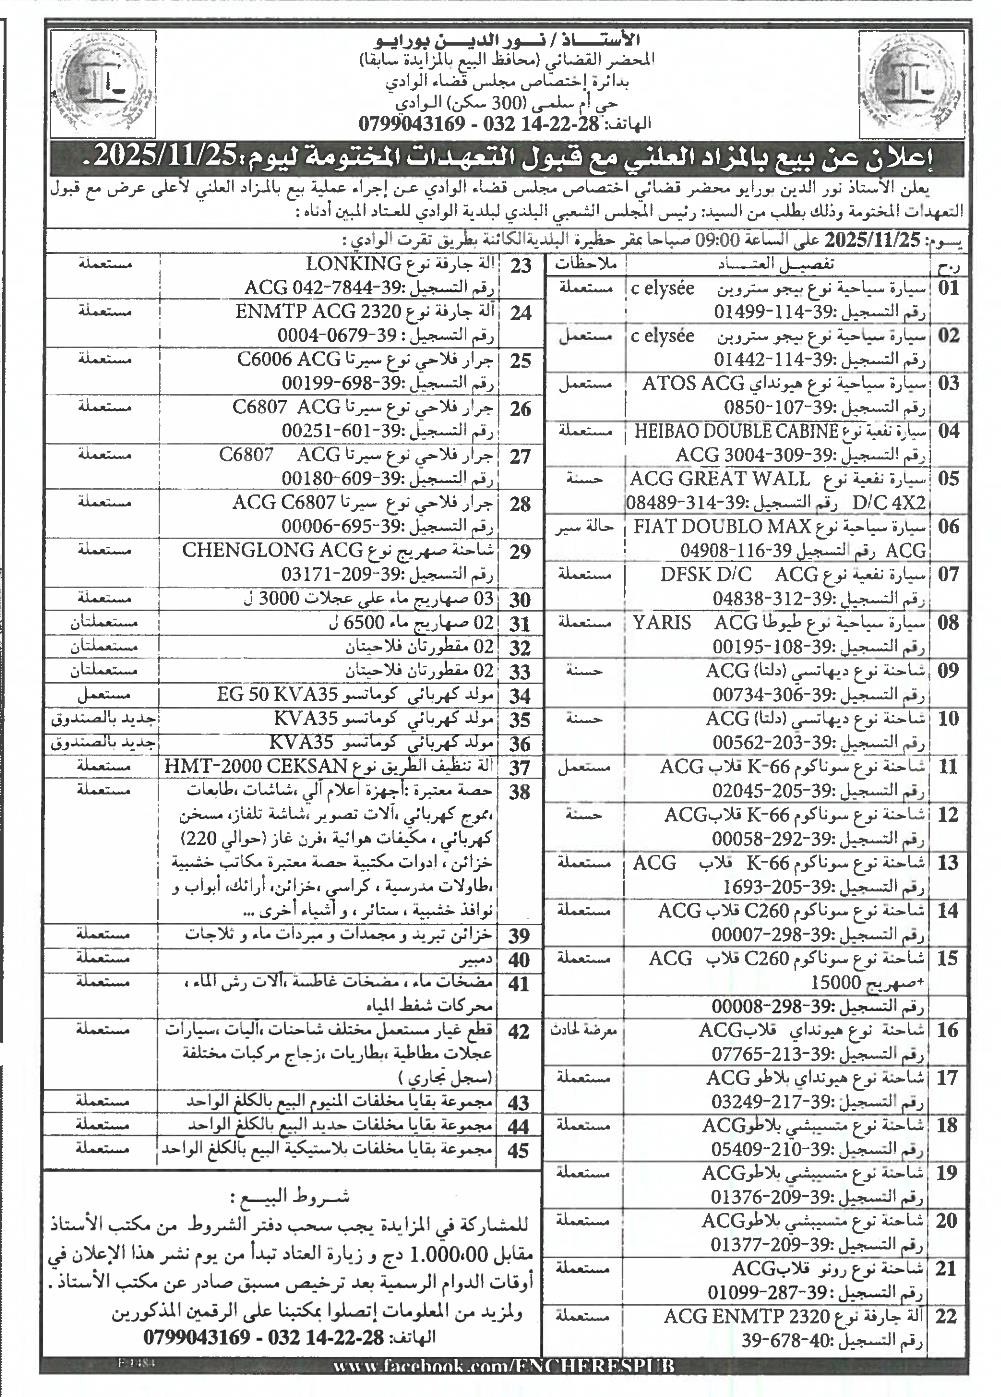 الأستــاذ/ نـور الديـن بورايو
المحضر القضائي (محافظ البيع بالمزايدة سابقا)
بدائرة إختصاص مجلس قضاء الوادي
حي أم سلمى (300 سكن) الوادي
الهاتف: 28-22-14 032 - 0799043169
إعلان عن بيع بالمزاد العلني مع قبول التعهدات المختومة ليوم:2025/11/25.
يعلن الأستاذ نور الدين بورايو محضر قضائي اختصاص مجلس قضاء الوادي عـن إجراء عملية بيع بالمزاد العلني لأعلى عرض مع قبول
التعهدات المختومة وذلك بطلب من السيد: رئيس المجلس الشعبي البلدي لبلدية الوادي للعتاد المبين أدناه :
يـوم: 2025/11/25 على الساعة 09:00 صباحا بمقر حظيرة البلدية الكائنة بطريق تقرت الوادي :
ر.ح تفصيل العتـاد ملاحظات
01 سيارة سياحية نوع بيجو ستروين c elysée مستعملة
رقم التسجيل :39-114-01499
02 سيارة سياحية نوع بيجو ستروين c elysée مستعمل
رقم التسجيل :39-114-01442
03 سيارة سياحية نوع هيونداي ATOS ACG مستعمل
رقم التسجيل :39-107-0850
04 سيارة نفعية نوع HEIBAO DOUBLE CABINE مستعملة
رقم التسجيل :39-309-3004 ACG
05 سيارة نفعية نوع ACG GREAT WALL حسنة
D/C 4X2 رقم التسجيل :39-314-08489
06 سيارة سياحية نوع FIAT DOUBLO MAX حالة سير
ACG رقم التسجيل 39-116-04908
07 سيارة نفعية نوع DFSK D/C ACG مستعملة
رقم التسجيل :39-312-04838
08 سيارة سياحية نوع طيوطا YARIS ACG مستعملة
رقم التسجيل :39-108-00195
09 شاحنة نوع ديهاتسي (دلتا) ACG حسنة
رقم التسجيل :39-306-00734
10 شاحنة نوع ديهاتسي (دلتا) ACG حسنة
رقم التسجيل :39-203-00562
11 شاحنة نوع سوناكوم K-66 قلاب ACG مستعمل
رقم التسجيل :39-205-02045
12 شاحنة نوع سوناكوم K-66 قلابACG حسنة
رقم التسجيل :39-292-00058
13 شاحنة نوع سوناكوم K-66 قلاب ACG مستعملة
رقم التسجيل :39-205-1693
14 شاحنة نوع سوناكوم C260 قلاب ACG مستعملة
رقم التسجيل :39-298-00007
15 شاحنة نوع سوناكوم C260 قلاب ACG مستعملة
+صهريج 15000
رقم التسجيل :39-298-00008
16 شاحنة نوع هيونداي قلابACG معرضة لحادث
رقم التسجيل :39-213-07765
17 شاحنة نوع هيونداي بلاطو ACG مستعملة
رقم التسجيل :39-217-03249
18 شاحنة نوع متسيبشي بلاطوACG مستعملة
رقم التسجيل :39-210-05409
19 شاحنة نوع متسيبشي بلاطوACG مستعملة
رقم التسجيل :39-209-01376
20 شاحنة نوع متسيبشي بلاطوACG مستعملة
رقم التسجيل :39-209-01377
21 شاحنة نوع رونو قلابACG مستعملة
رقم التسجيل :39-287-01099
22 آلة جارفة نوع ACG ENMTP 2320 مستعملة
رقم التسجيل :40-678-39
23 آلة جارفة نوع LONKING مستعملة
رقم التسجيل :39-7844-042 ACG
24 آلة جارفة نوع ENMTP ACG 2320 مستعملة
رقم التسجيل : 39-0679-0004
25 جرار فلاحي نوع سيرتا C6006 ACG مستعملة
رقم التسجيل :39-698-00199
26 جرار فلاحي نوع سيرتا C6807 ACG مستعملة
رقم التسجيل :39-601-00251
27 جرار فلاحي نوع سيرتا C6807 ACG مستعملة
رقم التسجيل :39-609-00180
28 جرار فلاحي نوع سيرتا ACG C6807 مستعملة
رقم التسجيل :39-695-00006
29 شاحنة صهريج نوع CHENGLONG ACG مستعملة
رقم التسجيل :39-209-03171
30 03 صهاريج ماء على عجلات 3000 ل مستعملة
31 02 صهاريج ماء 6500 ل مستعملتان
32 02 مقطورتان فلاحيتان مستعملتان
33 02 مقطورتان فلاحيتان مستعملتان
34 مولد كهربائي كوماتسو EG 50 KVA35 مستعمل
35 مولد كهربائي كوماتسو KVA35 جديد بالصندوق
36 مولد كهربائي كوماتسو KVA35 جديد بالصندوق
37 آلة تنظيف الطريق نوع HMT-2000 CEKSAN مستعملة
38 حصة معتبرة :أجهزة اعلام آلي ،شاشات ،طابعات مستعملة
،موج كهربائي ،آلات تصوير ،شاشة تلفاز، مسخن
كهربائي ، مكيفات هوائية ،فرن غاز (حوالي 220)
خزائن ، ادوات مكتبية حصة معتبرة مكاتب خشبية
،طاولات مدرسية ، كراسي ،خزائن، أرائك، أبواب و
نوافذ خشبية ، ستائر ، و أشياء أخرى ...
39 خزائن تبريد و مجمدات و مبردات ماء و ثلاجات مستعملة
40 دمبير مستعملة
41 مضخات ماء ، مضخات غاطسة ،آلات رش الماء ، مستعملة
محركات شفط المياه
42 قطع غيار مستعمل مختلف شاحنات ،آليات ،سيارات مستعملة
عجلات مطاطية ،بطاريات ،زجاج مركبات مختلفة
(سجل تجاري )
43 مجموعة بقايا مخلفات المنيوم البيع بالكلغ الواحد مستعملة
44 مجموعة بقايا مخلفات حديد البيع بالكلغ الواحد مستعملة
45 مجموعة بقايا مخلفات بلاستيكية البيع بالكلغ الواحد مستعملة
شـروط البيـع :
للمشاركة في المزايدة يجب سحب دفتر الشروط من مكتب الأستاذ
مقابل 1.000،00 دج و زيارة العتاد تبدأ من يوم نشر هذا الإعلان في
أوقات الدوام الرسمية بعد ترخيص مسبق صادر عن مكتب الأستاذ .
ولمزيد من المعلومات إتصلوا بمكتبنا على الرقمين المذكورين
الهاتف: 28-22-14 032 - 0799043169
www.facebook.com/ENCHERESPUB
F-1484